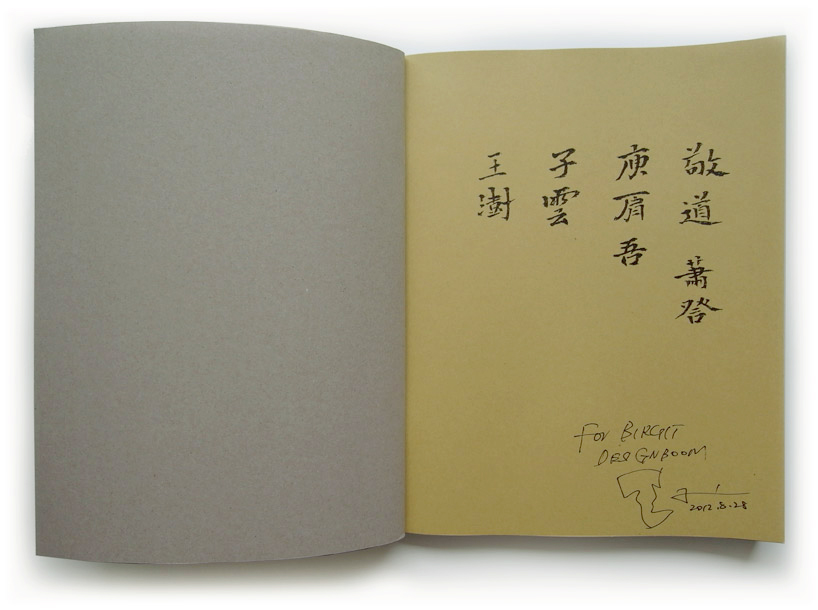 敬道 蕭詧
庾肩吾
子雲
王澍
For BIRGIT
DESIGNBOOM
2012.8.28